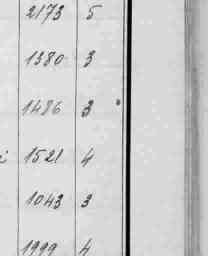 2173 5
1380 3
1486 3
1521 4
1043 3
1999 4